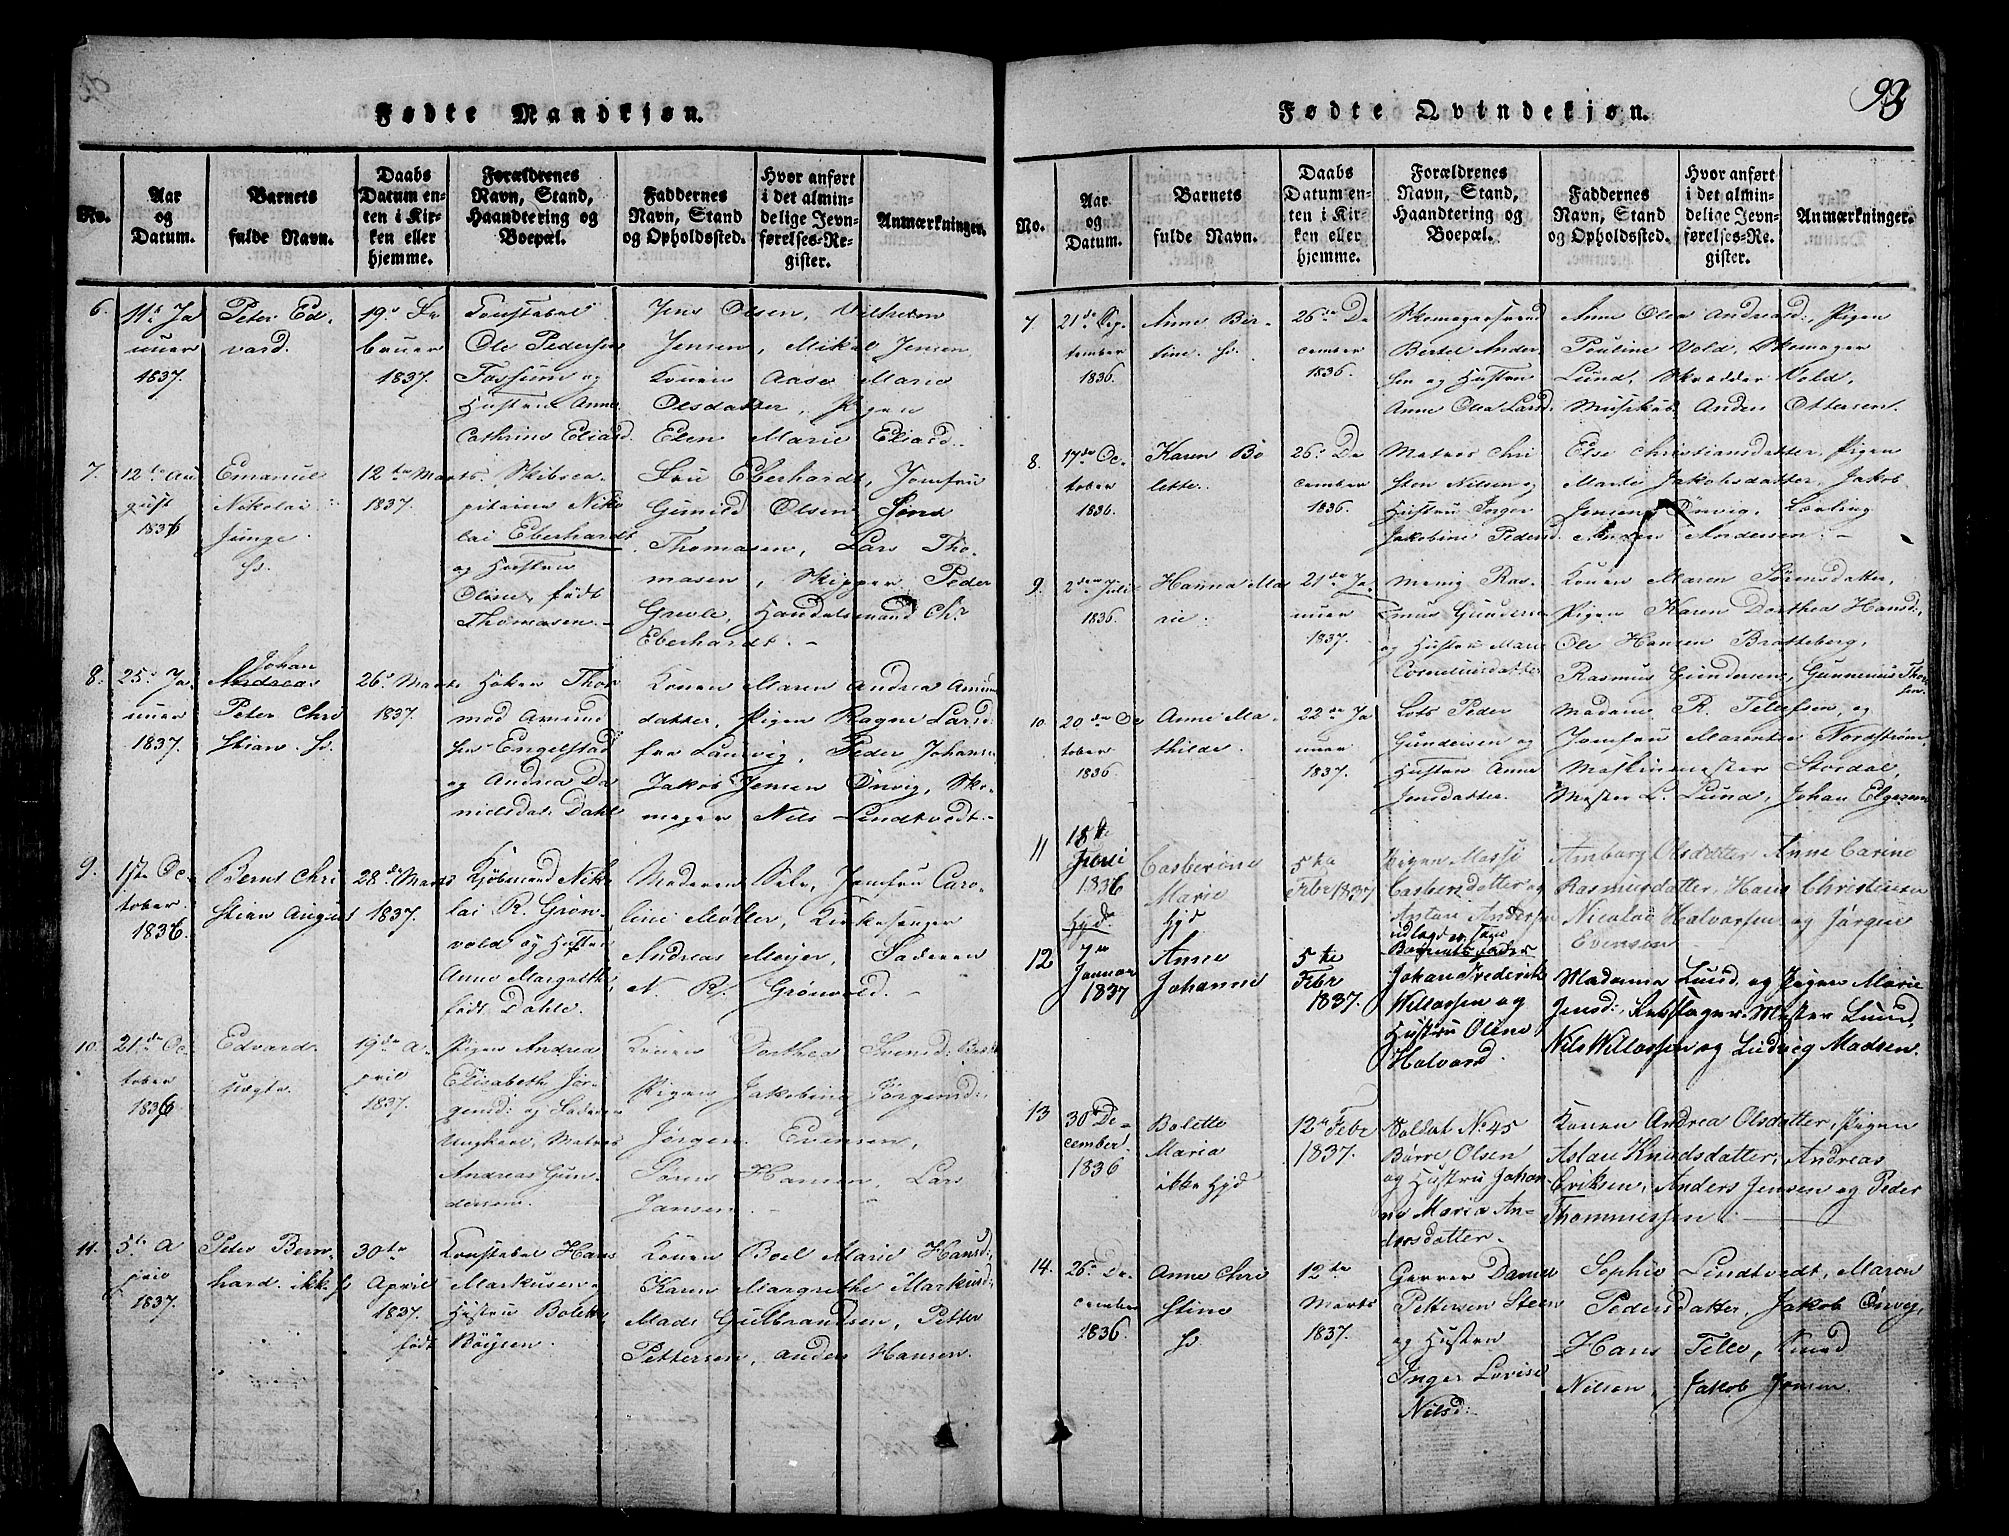 93
Fødte Mandkjøn.
No.
Aar
og
Datum.
Barnets
fulde Navn.
Daabs
Datum en-
ten i Kir-
ken eller
hjemme.
Forældrenes
Navn, Stand,
Haandtering og
Boepæl.
Faddernes
Navn, Stand
og Opholdssted.
Hvor anført
i det almin-
delige Jevn-
førelses-Re-
gister.
Anmærkninger.
6.
11te Ja
nuar
1837.
Peter Ed-
vard.
19de Fe
bruar
1837.
Constabel
Ole Pedersen
Fossum og
Hustru Anne
Cathrine Eliasd.
Jens Olsen, Vilhelm
Jensen, Mikal Jensen
Konen Aase Marie
Olsdatter, Pigen
Elen Marie Eliasd.
7.
12te Au
gust
1836
Emanuel
Nikolai
Junge.
Hj.
12te Marts
1837.
Skibsca-
pitaine Niko
lai Eberhardt
og Hustru
Olsine, født
Thomasen.
Fru Eberhardt, Jomfru
Gunild Olsen
Thomasen, Lars Tho-
masen, Skipper Peder
Greve, Handelsmand Chr
Eberhardt.
8.
25de Ja
nuar
1837.
Johan
Andreas
Peter Chri
stian. Hj.
26de Marts
1837.
Høker Thor
mod Amund
sen Engelstad
og Andrea Da
nielsdat. Dahl
Konen Maren Andrea Amun
datter, Pigen Ragne Larsd:
fra Laurvig, Peder Johans.
Jakob Jensen Ønvig, Sko-
mager Nils Lindtvedt.
9.
1ste Oc
tober
1836.
Bernt Chri
stian August
28de Marts
1837.
Kjøbmand Niko
lai R. Grøn-
vold og Hustru
Anne Margrethe
født Dahle.
Madamen Selv, Jomfru Caro-
line Møller, Kirkesanger
Andreas Meyer, Faderen
N. R. Grønvold.
10.
21de Oc
tober
1836
Edvard.
uægte.
19de A
pril
1837.
Pigen Andrea
Elisabeth Jør-
gensd: og Faderen
Ungkarl, Matros
Andreas Gun
dersen.
Konen Dorthea Svensd:
Pigen Jakobine Jørgensd:,
Jørgen Evensen,
Søren Hansen, Lars
Jansen.
11.
5te A
pril
1837.
Peter Bern
hard. ikke
30te
April
1837.
Constabel Hans
Markusen og
Hustru Bolette
født Bøysen.
Konen Boel Marie Hansd:,
Karen Margrethe Markusd:
Mads Gulbrandsen, Petter
Pettersen, Anders Hansen.
Fødte Qvindekjøn.
No.
Aar
og
Datum.
Barnets
fulde Navn.
Daabs
Datum en-
ten i Kir-
ken eller
hjemme.
Forældrenes
Navn, Stand,
Haandtering og
Boepæl.
Faddernes
Navn, Stand
og Opholdssted.
Hvor anført
i det almin-
delige Jevn-
førelses-Re-
gister.
Anmærkninger.
7
21de Sep-
tember
1836
Anne Ber-
tine. Hj.
26de De
cember
1836.
Skomagersvend
Bertel Ander
sen og Hustru
Anne Olea Larsd:
Anne Olea Andreasd:, Pigen
Pauline Vold, Skomager
Lund, Skrædder Vold,
Musikus Anders Ottersen.
8.
17de Oc-
tober
1836.
Karen Bo
lette.
26de De
cember
1836.
Matros Chri
sten Nilsen og
Hustru Inger
Jakobine Pedersd.
Else Christiansdatter, Pigen
Marte Jakobsdatter, Jakob
Jensen Ønvig, Lærling
Anders Andersen.
9.
2den Juli
1836.
Hanna Ma
rie.
21de Ja
nuar
1837.
Menig Ras-
mus Gundersen
og Hustru Marie
Corneliusdatter
Konen Maren Sørensdatter,
Pigen Karen Dorthea Hansd:,
Ole Hansen Bratteberg,
Rasmus Gundersen, Gunnerius Thor
sen.
10.
20de Oc
tober
1836
Anne Ma-
thilde.
22de Ja
nuar
1837.
Lots Peder
Gundersen og
Hustru Anne
Jensdatter.
Madame R. Tellefsen, og
Jomfru Marentse Nordstrøm,
Maskinmester Stordal,
Mester L. Lund, Johan Elgesem
11
18de
Juni
1836
Hjd.
Casberine
Marie
Hjd
5te
Febr 1837
Pigen Massi
Caspersdatter og
Antau Andersen
udlagd er som
Barnets Fader
Amborg Olsdatter Anne Carine
Rasmusdatter, Hans Christensen
Nicolai Halvorsen og Jørgen
Evensen
12
7de
Januar
1837
Anne
Johanne
5te
Febr
1837.
Johan Frederik
Willassen og
Hustru Oline
Halvorsd.
Madame Lund og Pigen Marie
Jensd:, Rebslager Mester Lund,
Nils Willassen og Ludvig Madsen.
13
30te De-
cember
1836
Bolette
Maria
ikke Hjd
12te Febr
1837.
Soldat No 45
Børre Olsen
og Hustru Johan-
ne Maria An-
dersdatter.
Konen Andrea Olsdatter, Pigen
Aslau Knudsdatter, Andreas
Eriksen, Anders Jensen og Peder
Thommessen.
14.
26de De-
cember
1836.
Anne Chri
stine
Hj.
12te
Marts
1837.
Garver Daniel
Pettersen Steen
og Hustru
Inger Lovise
Nilsd:
Sophie Lindtvedt, Maren
Pedersdatter, Jakob Ønvig,
Hans Telle, Knud
Nilsen, Jakob Jensen.